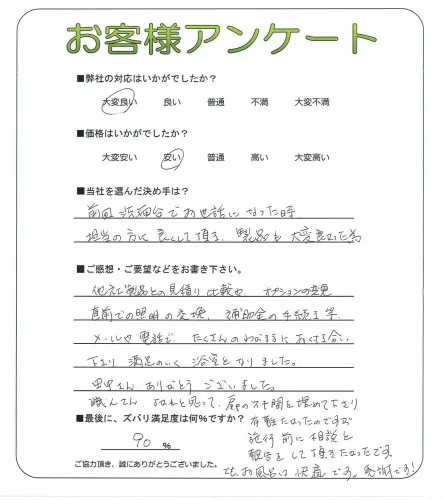 お客様アンケート
■弊社の対応はいかがでしたか?
大変良い 良い 普通 不満 大変不満
■価格はいかがでしたか?
大変安い 安い 普通 高い 大変高い
■当社を選んだ決め手は?
前回 洗面台でお世話になった時
担当の方に良くして頂き、製品も大変良かった為
■ご感想・ご要望などをお書き下さい。
他社製品との見積り比較や、オプションの変更
直前での照明の交換、補助金の手続き等
メールや電話で、たくさんのわがままにお付き合い
下さり 満足のいく 浴室となりました。
田中さん ありがとうございました。
職人さん、よかれと思って、扉の下の隙間を埋めて下さり
■最後に、ズバリ満足度は何%ですか?
有難かったのですが
施行前に相談と
90 %
報告をして頂きたかったです。
ご協力頂き、誠にありがとうございました。
でも、お風呂は快適です。感謝です!